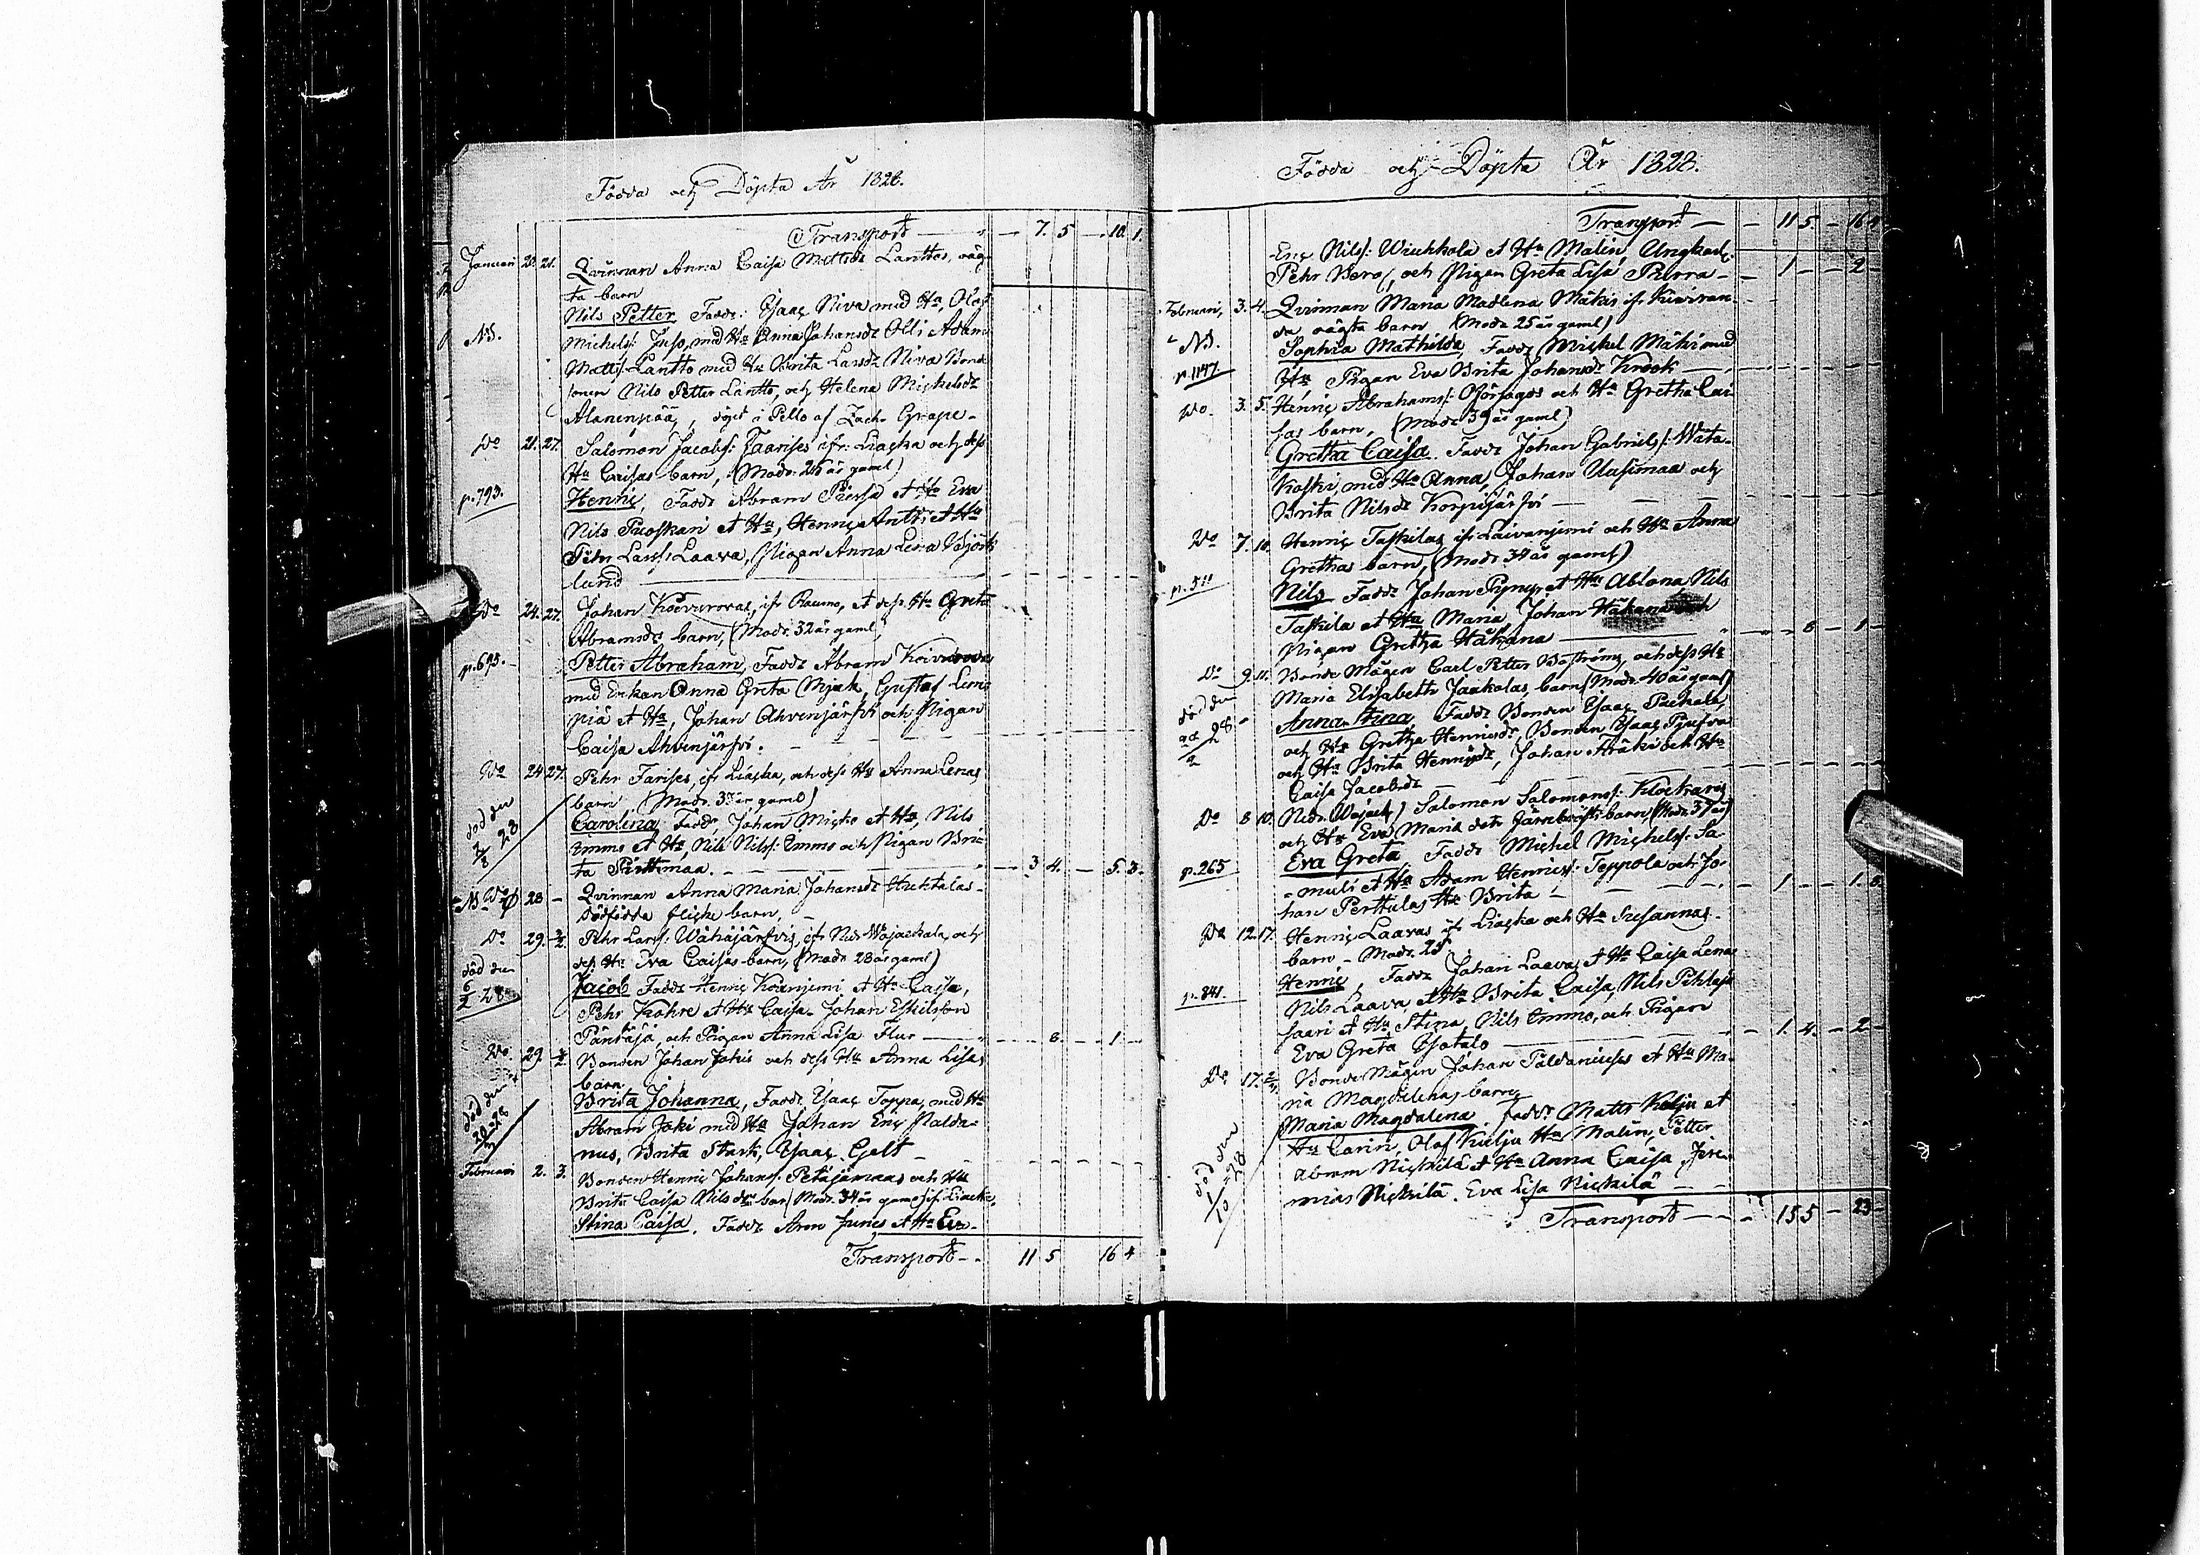 Födda och Döpta År 1828.
Transport — 7. 5 — 10. 1.
Januari 20. 21. Qvinnan Anna Caisa Mattsdr Lanttos, oäg-
ta barn
Nils Petter Fadd: Isaac Niva med Hu, Olof
NB. Michels: Juso, med Hu Anna Johansdr Olli Adam
Matts: Lantto med Hu Brita Larsdr Niva Bonde
sonen Nils Petter Lantto, och Helena Michelsdr
Alanenpää, döpt i Pello af Zach. Grape —
Do 21. 27. Salomon Jacobs: ifr: Liacka och dess
Hu Caisas barn, (Modr. 26 år gaml)
p. 793. Henric, Faddr Abram Piessa et Hu Eva
Nils Puoskari et Hu, Henric Antti et Hu
Pehr Larss: Laava, Pigan Anna Lena Björk
lund
Do 24. 27. Johan Koivurovas, ifr Raumo, et dess Hu Greta
Abramsdr barn, (Modr. 32 år gaml)
p. 695. Petter Abraham, Faddr Abram Koivurova
med Enkan Anna Greta Gustaf Lem-
piä et Hu, Johan Ahvenjärfvi och Pigan
Caisa Ahvenjärfvi.
Do 24 27. Pehr ifr Liacka, och dess Hu Anna Lenas
barn (Modr. år gaml)
död den Carolina Faddr Johan et Hu, Nils
28 Emmo et Hu, Nils Nilss: Emmo och Pigan Bri-
ta — 3 4. — 5. 3.
NB Do 28 — Qvinnan Anna Maria Johansdr Huhtalas
dödfödda flicke barn,
Do 29. 3/2. Pehr Larss: Wähäjärfvis, ifr Ned. Wojackala, och
dess Hu Eva Caisas barn, (Modr 28 år gaml)
död den 6/2 28 Jacob Faddr Henric Koivuniemi et Hu Caisa,
Pehr Kohre et Hu Caisa. Johan Eskilsson
och Pigan Anna Lisa Flur — 6. — 1 —
Do 29. Bonden Johan Jokis och dess Hu Anna Lisas
barn
död den Brita Johanna, Faddr Isaac Toppa, med Hu
Abram Joki med Hu Johan Eric Palda-
nus, Brita Stark, Isaac
Februari 2. 3. Bonden Henric Johans: Petäjämaas och Hu
Brita Caisa Nilsdr barn (Modr. 34 år gaml) ifr Liacka.
Stina Caisa. Faddr Aron Junes et Hu Eva
Transport — 11 5 16 4
Födda och Döpta År 1828.
Transport — 11 5. — 16 4
Eric Nilss: Wiuhkola et Hu Malin, Ungkarl.
Pehr och Pigan Greta Lisa — 1 — 2 —
Februari, 3. 4. Qvinnan Maria Madlena Mäkis ifr
da oägta barn (Modr 25 år gaml)
NB. Sophia Mathilda, Faddr Michel Mäki med
p. 1147 Hu Pigan Eva Brita Johansdr Krook
Do. 3. 5. Henric Abrahams: och Hu Gretha Cai-
sas barn, (Modr 39 år gaml)
Gretha Caisa. Faddr Johan Gabriels: Wata-
koski, med Hu Anna, Johan Uusimaa och
Brita Nilsdr Korpijärfvi —
Do 7. 10. Henric Taskilas ifr Laivaniemi och Hu Anna
Grethas barn, (Modr 34 år gaml)
p. 511 Nils Faddr Johan Pyny et Hu Ablona Nils
Taskila et Hu Maria, Johan
Pigan Gretha — 6 — 1 —
Do 9. 11. Bonde Mågen Carl Petter Boström, och dess Hu
Maria Elisabeth Jaakolas barn (Modr. 40 år gaml)
död den Anna Stina, Faddr Bonden Isaac
28 och Hu Gretha Henricsdr, Bonden Isaac
och Hu Brita Henricsdr, Johan och Hu
Caisa Jacobsdr
Do 8 10. Nedr. Wojack) Salomon Salomons:
och Hu Eva Maria barn (Modr. 37 år)
p. 265 Eva Greta. Faddr Michel Michels: Sa-
muli et Hu Adam Henrics: Teppola och Jo- — 1 — 1. 5.
han Perttulas Hu Brita —
Do 12. 17. Henric Laavas ifr Liacka och Hu Susannas
barn — Modr. 25
p. 841. Henric, Faddr Johan Laava et Hu Caisa Lena
Nils Laava, et Hu Brita Caisa, Nils Pihlaja
saari et Hu Stina, Nils Emmo, och Pigan
Eva Greta Isotalo — 1. 4. — 2 —
Do 17. Bonde Mågen Johan Paldaniuses et Hu Ma-
ria Magdalenas barn
Maria Magdalena Faddr Matts Kolju et
död den 28 Hu Carin, Olof Hu Malin, Petter
Abram Niskilä et Hu Anna Caisa, Jere-
mias Niskilä. Eva Lisa Niskilä —
Transport — 15 5 — 23 —